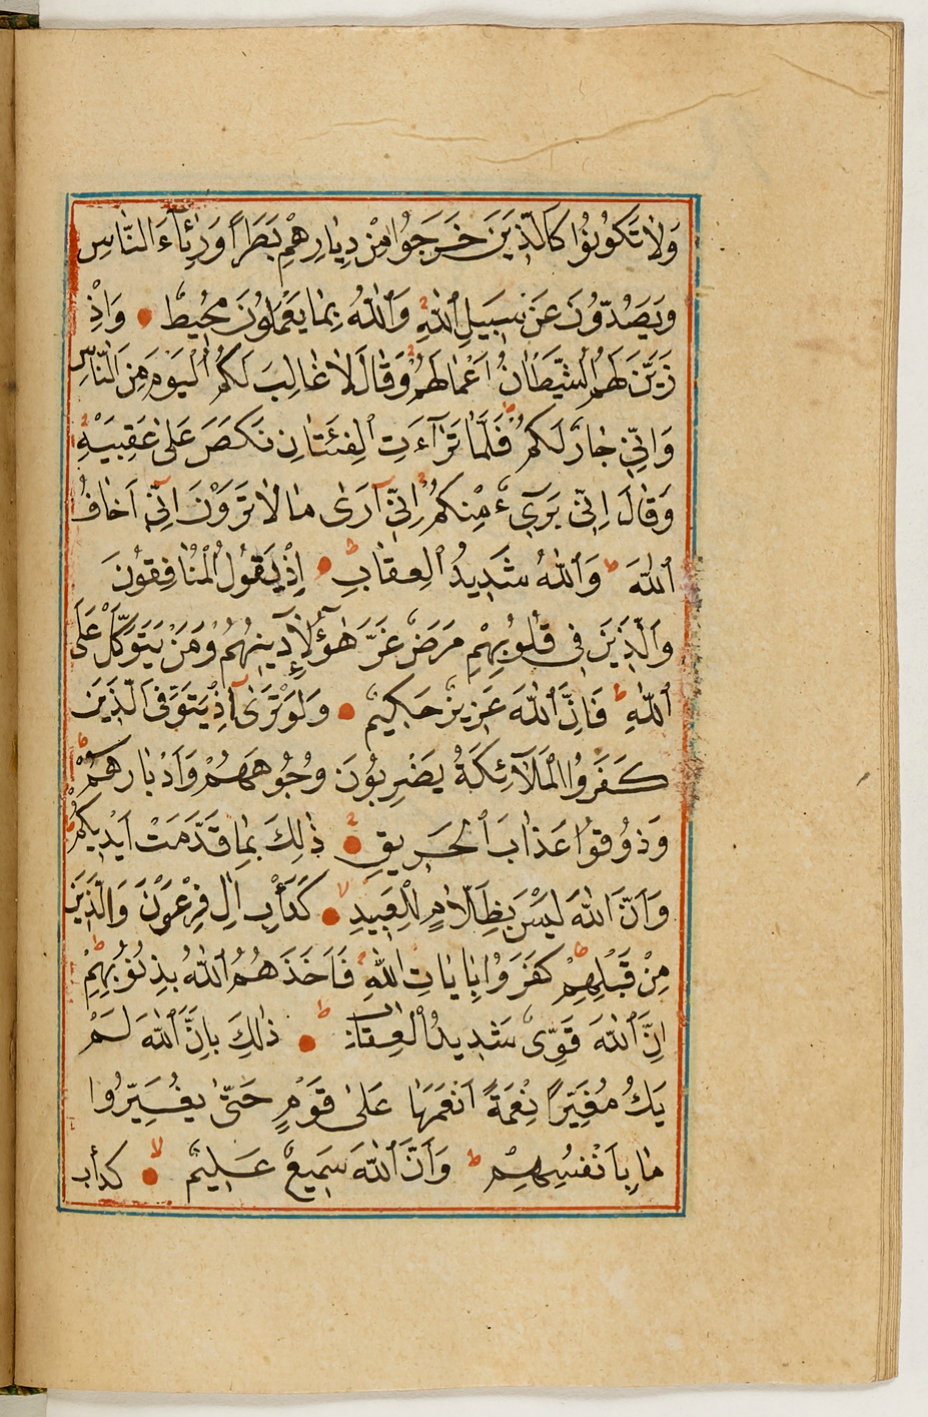 وَلَا تَكُونُوا كَالَّذِينَ خَرَجُوا مِنْ دِيَارِهِمْ بَطَرًا وَرِئَاءَ النَّاسِ
وَيَصُدُّونَ عَنْ سَبِيلِ اللّٰهِ وَاللّٰهُ بِمَا يَعْمَلُونَ مُحِيطٌ وَاِذْ
زَيَّنَ لَهُمُ الشَّيْطَانُ اَعْمَالَهُمْ وَقَالَ لَا غَالِبَ لَكُمُ الْيَوْمَ مِنَ النَّاسِ
وَاِنِّي جَارٌ لَكُمْ فَلَمَّا تَرَآءَتِ الْفِئَتَانِ نَكَصَ عَلٰى عَقِبَيْهِ
وَقَالَ اِنِّي بَرِيٓءٌ مِنْكُمْ اِنِّيٓ اَرٰى مَا لَا تَرَوْنَ اِنِّيٓ اَخَافُ
اللّٰهَ ط وَاللّٰهُ شَدِيدُ الْعِقَابِ ط اِذْ يَقُولُ الْمُنَافِقُونَ
وَالَّذِينَ فِي قُلُوبِهِمْ مَرَضٌ غَرَّ هٰٓؤُلَآءِ دِينُهُمْ وَمَنْ يَتَوَكَّلْ عَلَى
اللّٰهِ ط فَاِنَّ اللّٰهَ عَزِيزٌ حَكِيمٌ وَلَوْ تَرٰىٓ اِذْ يَتَوَفَّى الَّذِينَ
كَفَرُوا الْمَلَآئِكَةُ يَضْرِبُونَ وُجُوهَهُمْ وَاَدْبَارَهُمْ
وَذُوقُوا عَذَابَ الْحَرِيقِ ذٰلِكَ بِمَا قَدَّمَتْ اَيْدِيكُمْ
وَاَنَّ اللّٰهَ لَيْسَ بِظَلَّامٍ لِلْعَبِيدِ لا كَدَأْبِ اٰلِ فِرْعَوْنَ وَالَّذِينَ
مِنْ قَبْلِهِمْ ط كَفَرُوا بِاٰيَاتِ اللّٰهِ فَاَخَذَهُمُ اللّٰهُ بِذُنُوبِهِمْ ط
اِنَّ اللّٰهَ قَوِيٌّ شَدِيدُ الْعِقَابِ ط ذٰلِكَ بِاَنَّ اللّٰهَ لَمْ
يَكُ مُغَيِّرًا نِعْمَةً اَنْعَمَهَا عَلٰى قَوْمٍ حَتّٰى يُغَيِّرُوا
مَا بِاَنْفُسِهِمْ ط وَاَنَّ اللّٰهَ سَمِيعٌ عَلِيمٌ لا كدأب